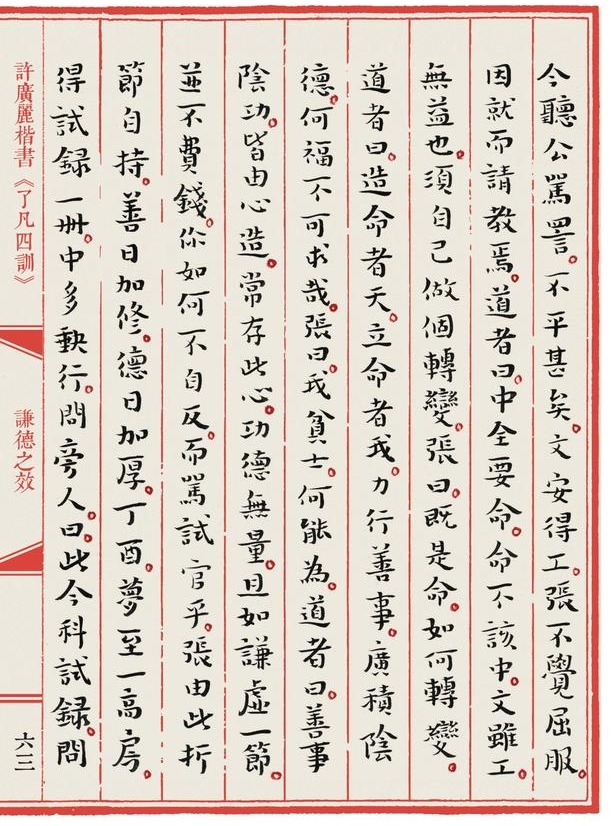 今聽公罵詈。不平甚矣。文安得工。張不覺屈服。
因就而請教焉。道者曰。中全要命。命不該中。文雖工。
無益也。須自己做個轉變。張曰。既是命。如何轉變。
道者曰。造命者天。立命者我。力行善事。廣積陰
德。何福不可求哉。張曰。我貧士。何能為。道者曰。善事
陰功。皆由心造。常存此心。功德無量。且如謙虛一節。
並不費錢。你如何不自反。而罵試官乎。張由此折
節自持。善日加修。德日加厚。丁酉。夢至一高房。
得試録一冊。中多缺行。問旁人。曰。此今科試録。問
許廣麗楷書《了凡四訓》
謙德之效
六三